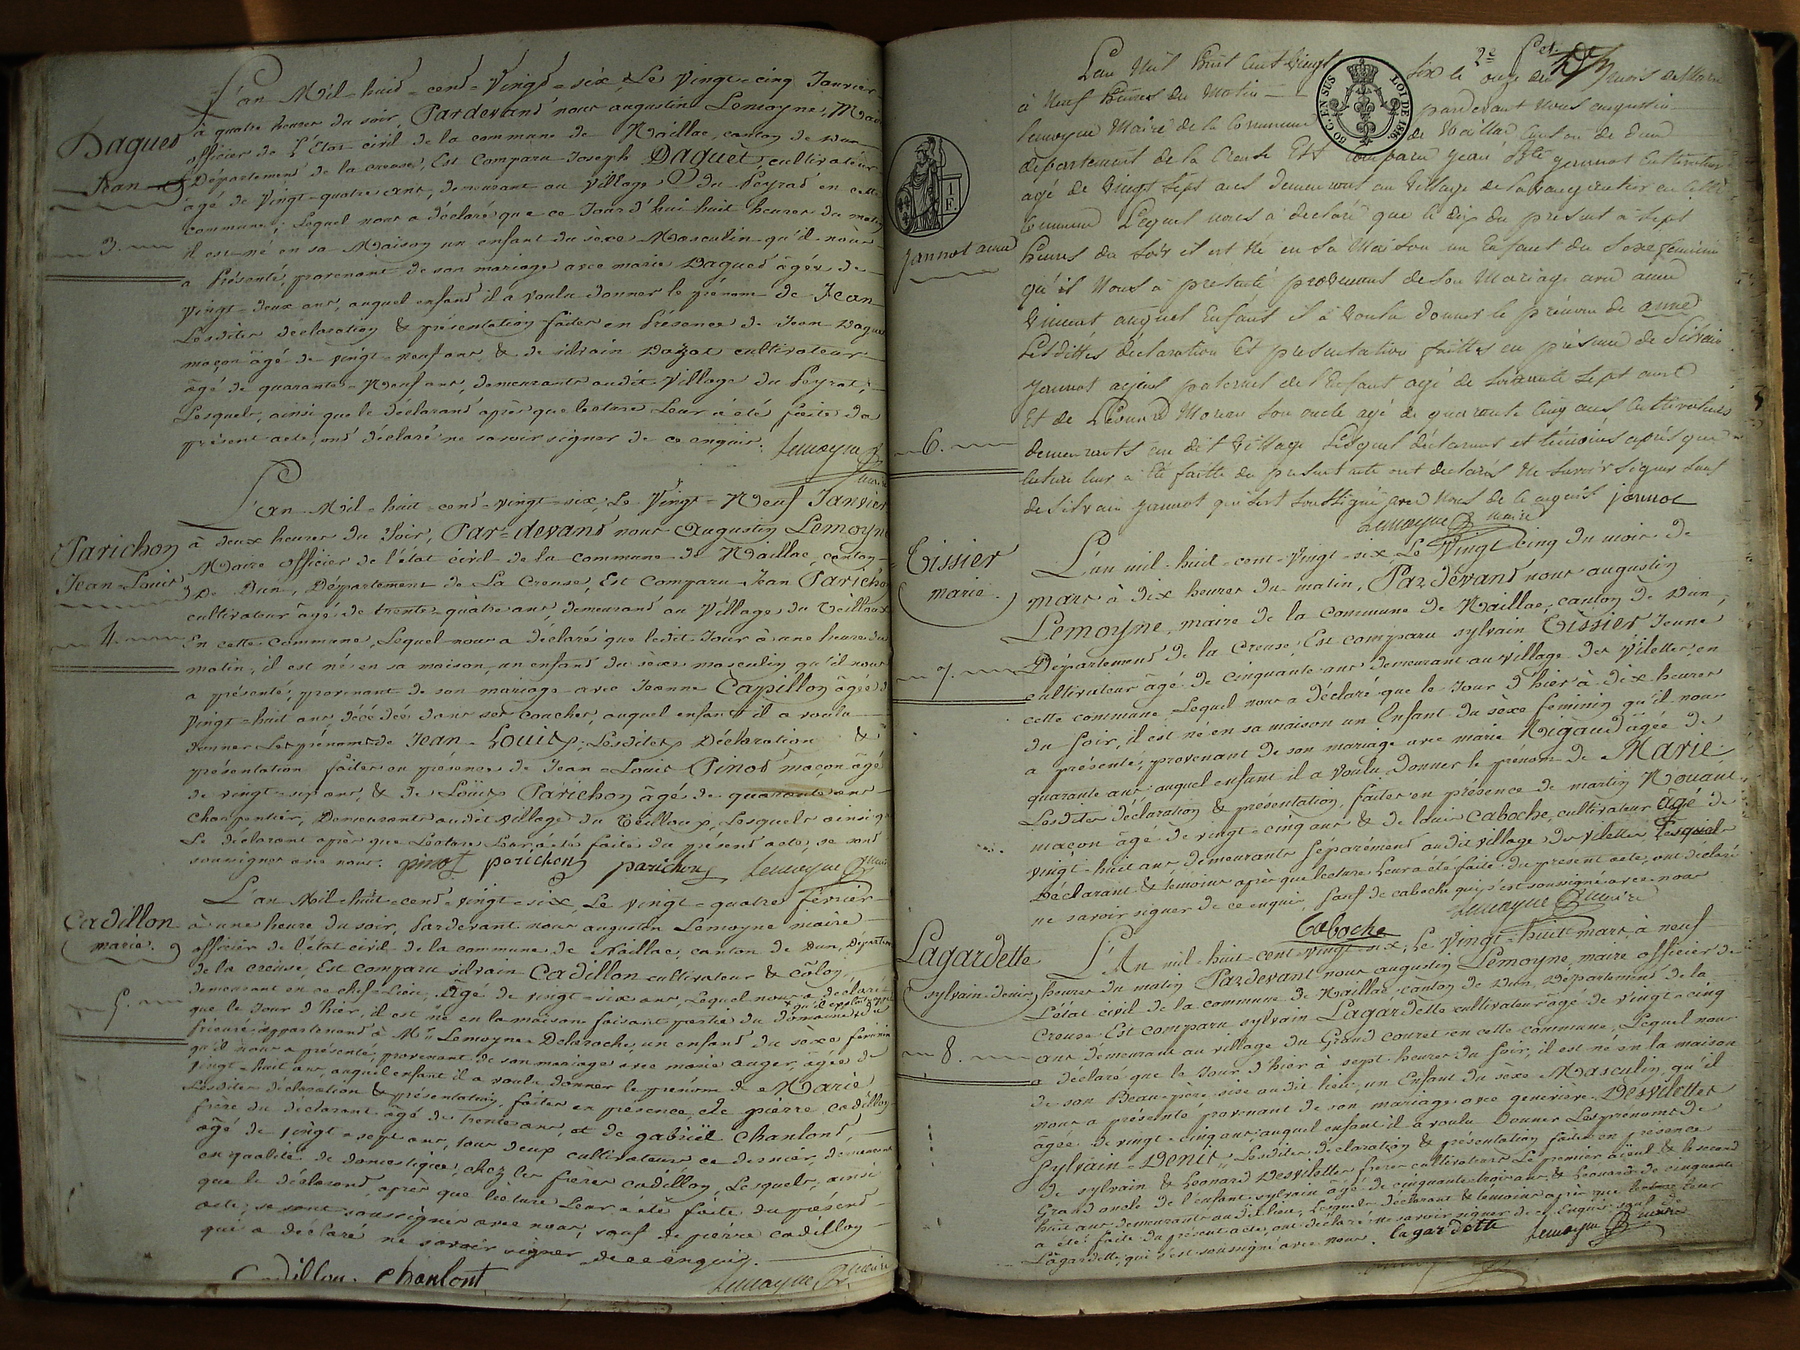 L'an Mil-huit-cent-Vingt-six, Le Vingt-cinq Janvier
à quatre heures du soir, Pardevant nous augustin Lemoyne, Maire
officier de l'Etat civil de la commune de Naillac, canton de Dun
Département de la creuse, Est Comparu Joseph Daguet cultivateur
âgé de Vingt-quatre ans, demeurant au Village du Peyrat en cette
commune; Lequel nous a déclaré que ce Jour d'hui huit heures du matin
il est né en sa Maison un enfant du sèxe Masculin qu'il nous
a Présenté, provenant de son mariage avec marie Daguet âgée de
Vingt-deux ans, auquel enfant il a voulu donner le prénom de Jean
Lesdites déclaration & présentation faites en Présence de Jean Daguet
maçon âgé de vingt-neuf ans, & de silvain cultivateur
âgé de quarante-Neuf ans, demeurants audit Village du Peyrat,
Lesquels, ainsi que le déclarant après que lecture Leur a été faite du
présent acte, ont déclaré ne savoir signer de ce enquis. Lemoyne
maire
Daguet
Jean
3.
L'an Mil-huit-cent-vingt-six, Le Vingt-Neuf Janvier
à deux heures du Soir, Par-devant nous Augustin Lemoyne
Maire officier de l'état civil de la commune de Naillac, canton
De Dun, Département de La Creuse, Est Comparu Jean Parichon
cultivateur âgé de trente-quatre ans, demeurant au Village du Teilloux
En cette commune, Lequel nous a déclaré que ledit Jour à une heure du
matin, il est né en sa maison, un enfant du sèxe masculin qu'il nous
a présenté, provenant de son mariage avec Jeanne Capillon âgée de
vingt-huit ans, décédée dans ses couches, auquel enfant il a voulu
donner Les prénoms de Jean-Louis, Lesdites Déclaration &
présentation faites en presence de Jean-Louis Pinot maçon âgé
de vingt-six ans, & de Louis Parichon âgé de quarante ans
charpentier, Demeurants audit Village du Teilloux, Lesquels ainsi que
Le déclarant après que Lecture Leur a été faite du présent acte, se sont
soussignés avec nous. pinot parichon parichon Lemoyne maire
Parichon
Jean-Louis
4.
L'an Mil-huit-cent-vingt-six, Le vingt-quatre février
à une heure du soir, Pardevant nous augustin Lemoyne maire
officier de l'état civil de la commune de Naillac, canton de Dun, Département
de la creuse, Est comparu silvain Cadillon cultivateur & colon
demeurant en ce chef-Lieu, Agé de vingt-six ans, Lequel nous a déclaré
que le Jour d'hier, il est né en la maison faisant partie du domaine
Prieuré appartenant à Mr Lemoyne Delaroche, un enfant du sexe féminin
qu'il nous a présenté, provenant de son mariage avec marie auger, âgée de
Vingt-huit ans, auquel enfant il a voulu donner le prénom de Marie
Lesdites déclaration & présentation faites en présence de pierre cadillon
frère du déclarant âgé de trente ans, et de gabriël Chanlont,
âgé de vingt-sept ans, tous deux cultivateurs ce dernier demeurant
en qualité de domestique, chez les frères cadillon, Lesquels, ainsi
que le déclarant, après que lecture Leur a été faite du présent
acte, se sont soussignés avec nous, sauf de pierre cadillon
qui a déclaré ne savoir signer de ce enquis.
Cadillon. Chanlont Lemoyne maire
Cadillon
marie.
5.
L'an Mil huit cent vingt six le onze du mois de Mars
à Neuf heures du Matin pardevant Nous augustin
Lemoyne Maire de la Commune de Naillac Canton de dun
département de la Creuse Est Comparu jean Bte jannot Cultivateur
agé de Vingt sept ans demeurant au Village de en Cette
Commune Lequel nous à declaré que le dix du présent à sept
heures du soir il est né en sa Maison un Enfant du sexe féminin
qu'il Nous à présenté provenant de son Mariage avec anne
Vincent auquel Enfant il à voulu donner le prénom de anne
Lesdittes déclaration Et presentation faittes en présence de Silvain
jannot ayeul paternel de l'Enfant agé de soixante sept ans
Et de Léonard Moreau son oncle agé de quarante Cinq ans Cultivateurs
demeurants au dit Village Lesquel déclarant et témoins après que
lecture leur à été faitte du présent acte ont déclarés Ne savoir signer sauf
de Silvain jannot qui s'est soussigné avec Nous de ce enquis jannot
Lemoyne maire
60 C. EN SUS
LOI DE 1816.
1 F.
jannot anne
6.
L'an mil-huit-cent-vingt-six Le Vingt cinq du mois de
mars à dix heures du matin, Pardevant nous augustin
Lemoyne, maire de la Commune de Naillac, canton de Dun,
Département de la Creuse, Est comparu sylvain Tissier Jeune
cultivateur âgé de cinquante ans demeurant au village des Vilettes, en
cette commune Lequel nous a déclaré que le Jour d'hier à dix heures
du soir, il est né en sa maison un Enfant du sexe féminin qu'il nous
a présenté, provenant de son mariage avec marie Nigaud âgée de
quarante ans auquel enfant il a voulu donner le prénom de Marie.
Lesdites déclaration & présentation, faites en présence de martin Nouaut
maçon âgé de vingt-cinq ans & de Louis Caboche, cultivateur âgé de
vingt-huit ans, demeurants séparément audit village des vilettes, Lesquels
Déclarant & témoins après que lecture leur a été faite du présent acte, ont déclaré
ne savoir signer de ce enquis, sauf de caboche qui s'est soussigné avec nous
Lemoyne maire
Caboche
Tissier
marie.
7.
L'An mil-huit-cent-vingt-six, Le Vingt-huit mars à neuf
heures du matin Pardevant nous augustin Lemoyne, maire officier de
L'état civil de la commune de Naillac, canton de Dun, Département de la
Creuse, Est Comparu sylvain Lagardette cultivateur âgé de vingt-cinq
ans demeurant au village du Grand couret en cette commune, Lequel nous
a déclaré que le Jour d'hier à sept heures du soir, il est né en la maison
de son Beau-pere sise audit lieu, un Enfant du sèxe Masculin, qu'il
nous a présenté, provenant de son mariage avec genevieve Desvilettes
âgée de vingt-cinq ans, auquel enfant il a voulu Donner Les prénoms de
Sylvain-Denis, Lesdites déclaration & présentation faites en présence
de sylvain & Leonard Desvilettes frères cultivateurs Le premier aïeul & le second
Grand oncle de l'enfant, sylvain âgé de cinquante trois ans, & Leonard de cinquante
huit ans demeurants audit lieu; Lesquels déclarant & témoins après que lecture leur
a été faite du présent acte, ont déclaré ne savoir signer de ce Enquis, sauf de
Lagardette, qui s'est soussigné avec nous. Lagardette Lemoyne maire
Lagardette
sylvain-denis
8.